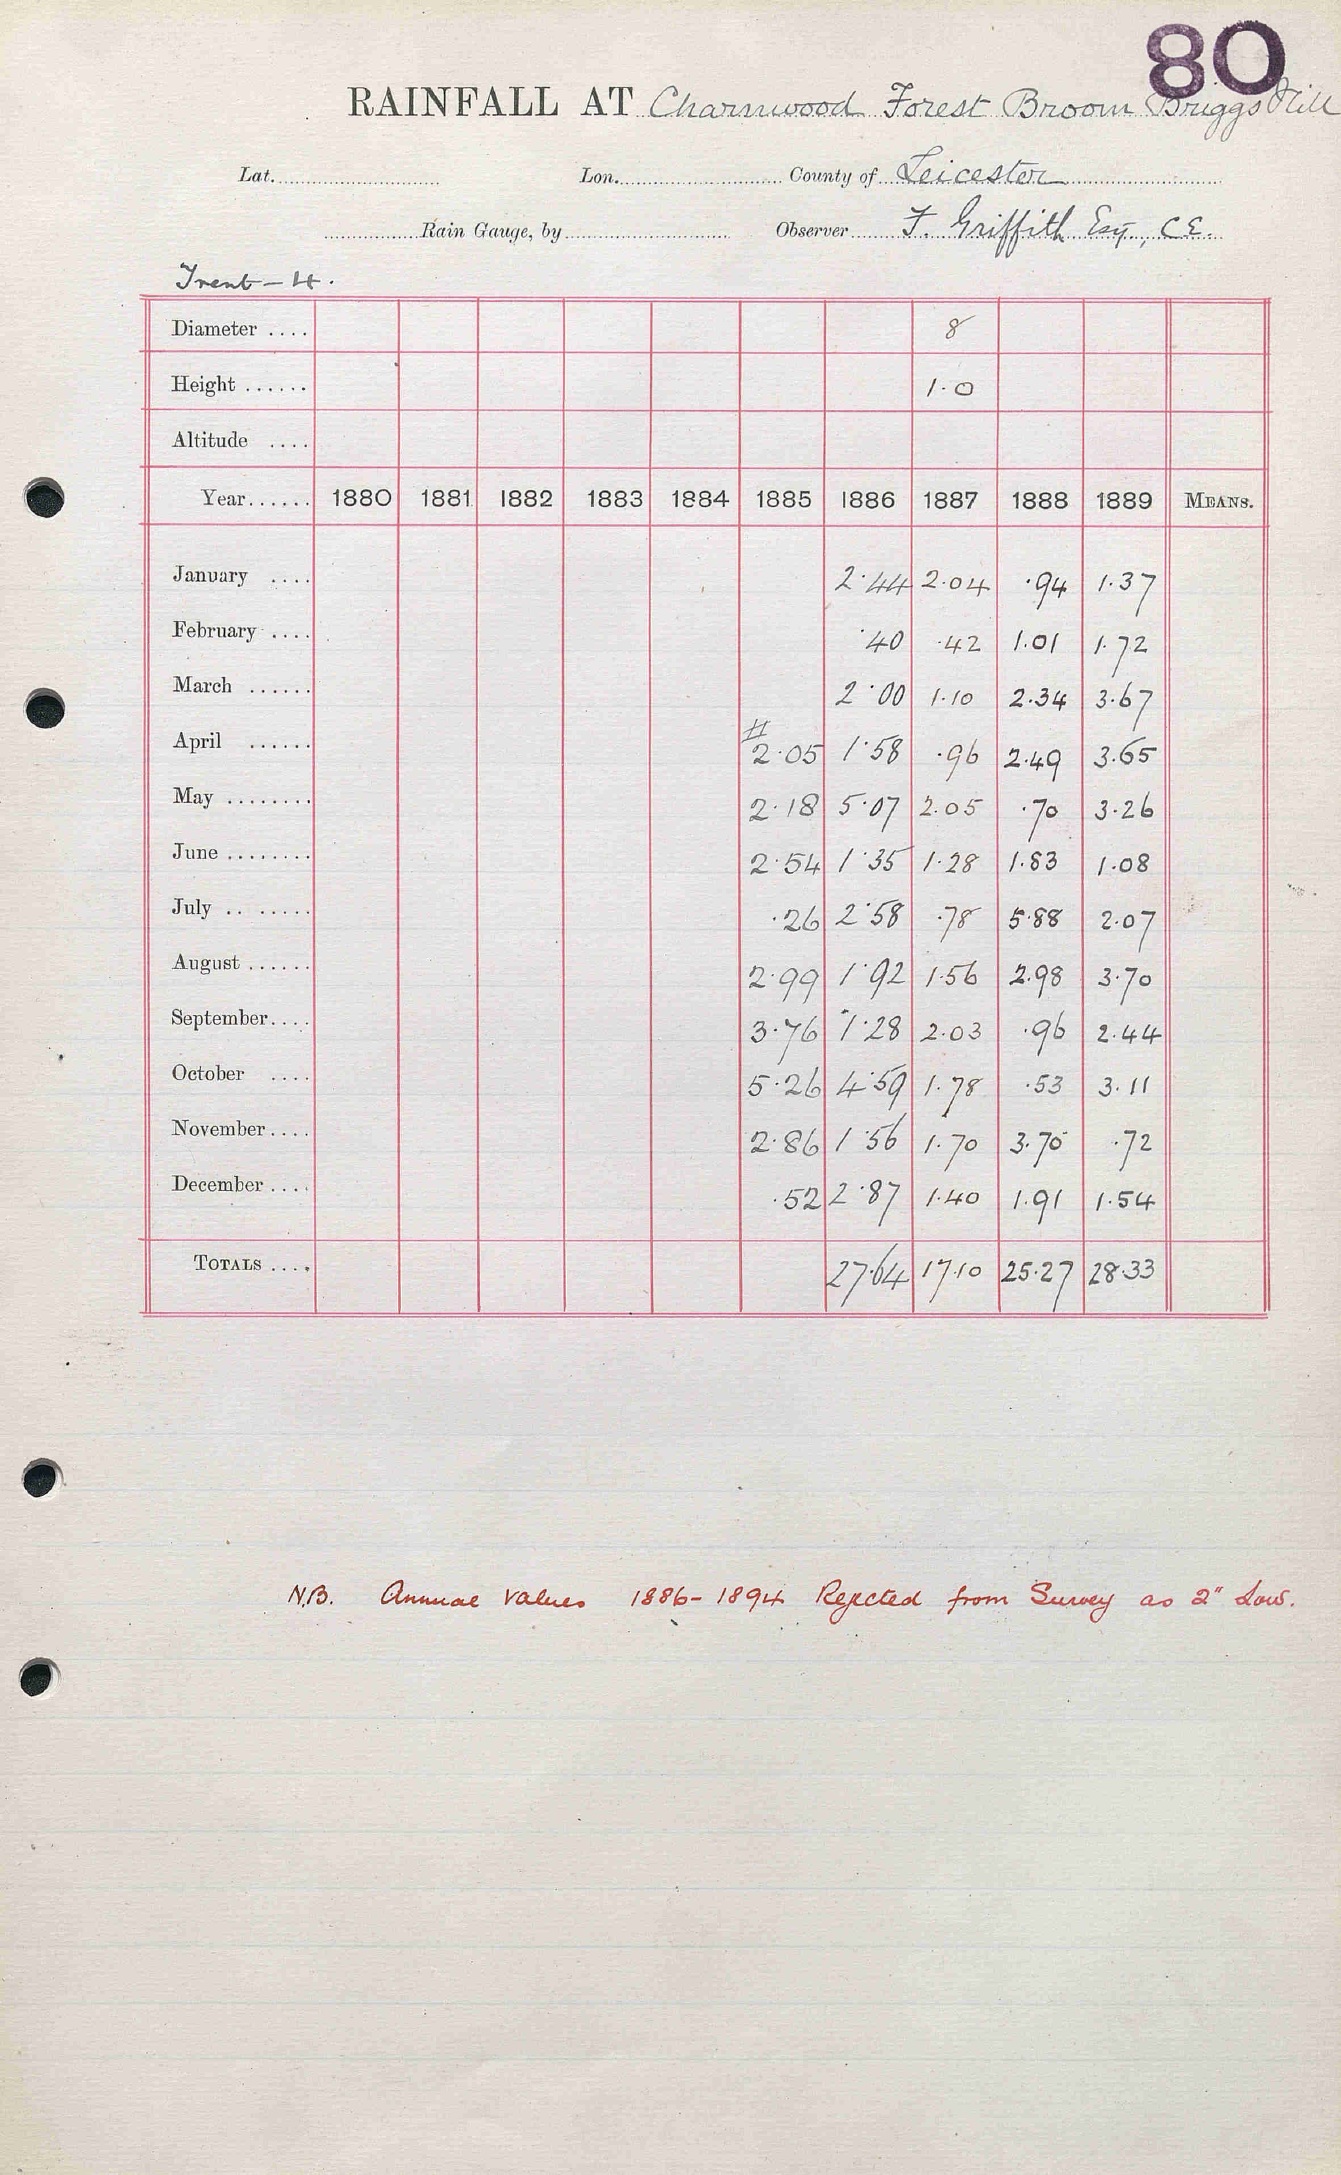 80
RAINFALL AT Charnwood Forest Broom Briggs Hill
Lat. Lon. County of Leicester
Rain Gauge, by Observer F. Griffith Esq, C.E.
Trent - 4.
Diameter .... 8
Height ...... 1.0
Altitude ....
Year...... 1880 1881 1882 1883 1884 1885 1886 1887 1888 1889 MEANS.
January .... 2.44 2.04 .94 1.37
February .... .40 .42 1.01 1.72
March ...... 2.00 1.10 2.34 3.67
April ...... # 2.05 1.58 .96 2.49 3.65
May ........ 2.18 5.07 2.05 .70 3.26
June ........ 2.54 1.35 1.28 1.83 1.08
July .. ..... .26 2.58 .78 5.88 2.07
August ...... 2.99 1.92 1.56 2.98 3.70
September.... 3.76 1.28 2.03 .96 2.44
October .... 5.26 4.59 1.78 .53 3.11
November.... 2.86 1.56 1.70 3.70 .72
December .... .52 2.87 1.40 1.91 1.54
TOTALS .... 27.64 17.10 25.27 28.33
N.B. Annual values 1886-1894 Rejected from Survey as 2" Low.